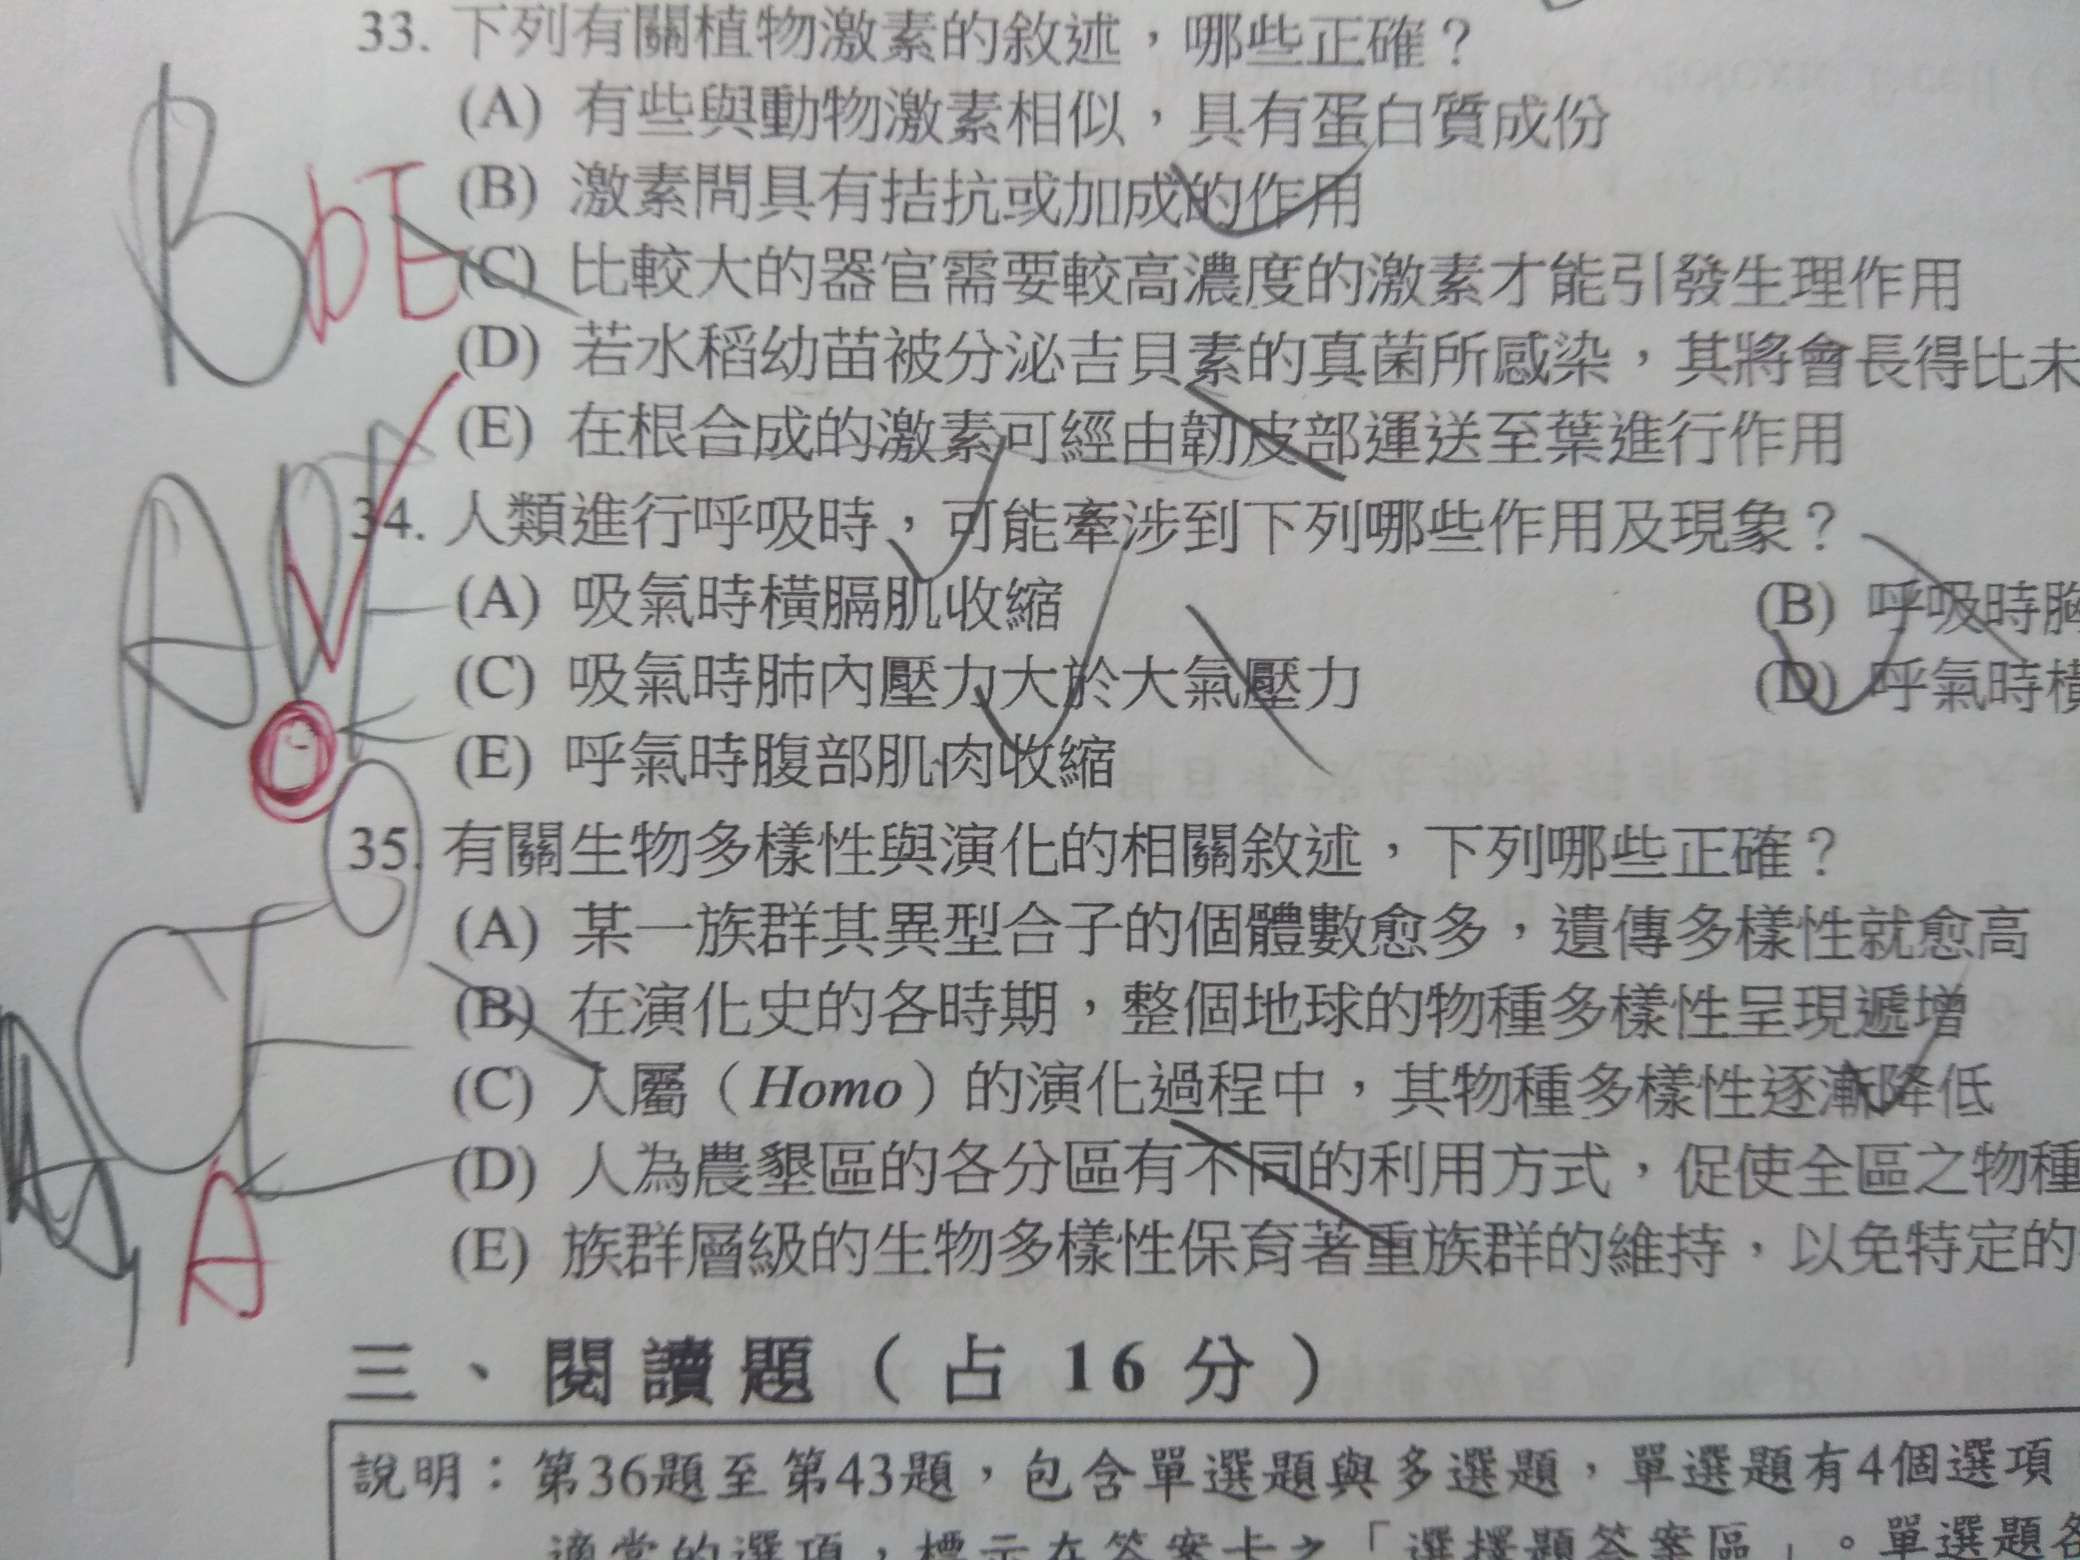 33. 下列有關植物激素的敘述，哪些正確？
(A) 有些與動物激素相似，具有蛋白質成份
(B) 激素間具有拮抗或加成的作用
B
bE
(C) 比較大的器官需要較高濃度的激素才能引發生理作用
(D) 若水稻幼苗被分泌吉貝素的真菌所感染，其將會長得比未
(E) 在根合成的激素可經由韌皮部運送至葉進行作用
34. 人類進行呼吸時，可能牽涉到下列哪些作用及現象？
(A) 吸氣時橫膈肌收縮 (B) 呼吸時胸
(C) 吸氣時肺內壓力大於大氣壓力 (D) 呼氣時橫
(E) 呼氣時腹部肌肉收縮
35. 有關生物多樣性與演化的相關敘述，下列哪些正確？
(A) 某一族群其異型合子的個體數愈多，遺傳多樣性就愈高
(B) 在演化史的各時期，整個地球的物種多樣性呈現遞增
(C) 人屬（Homo）的演化過程中，其物種多樣性逐漸降低
(D) 人為農墾區的各分區有不同的利用方式，促使全區之物種
A
(E) 族群層級的生物多樣性保育著重族群的維持，以免特定的
三、閱讀題（占16分）
說明：第36題至第43題，包含單選題與多選題，單選題有4個選項
適當的選項，標示在答案卡之「選擇題答案區」。單選題各